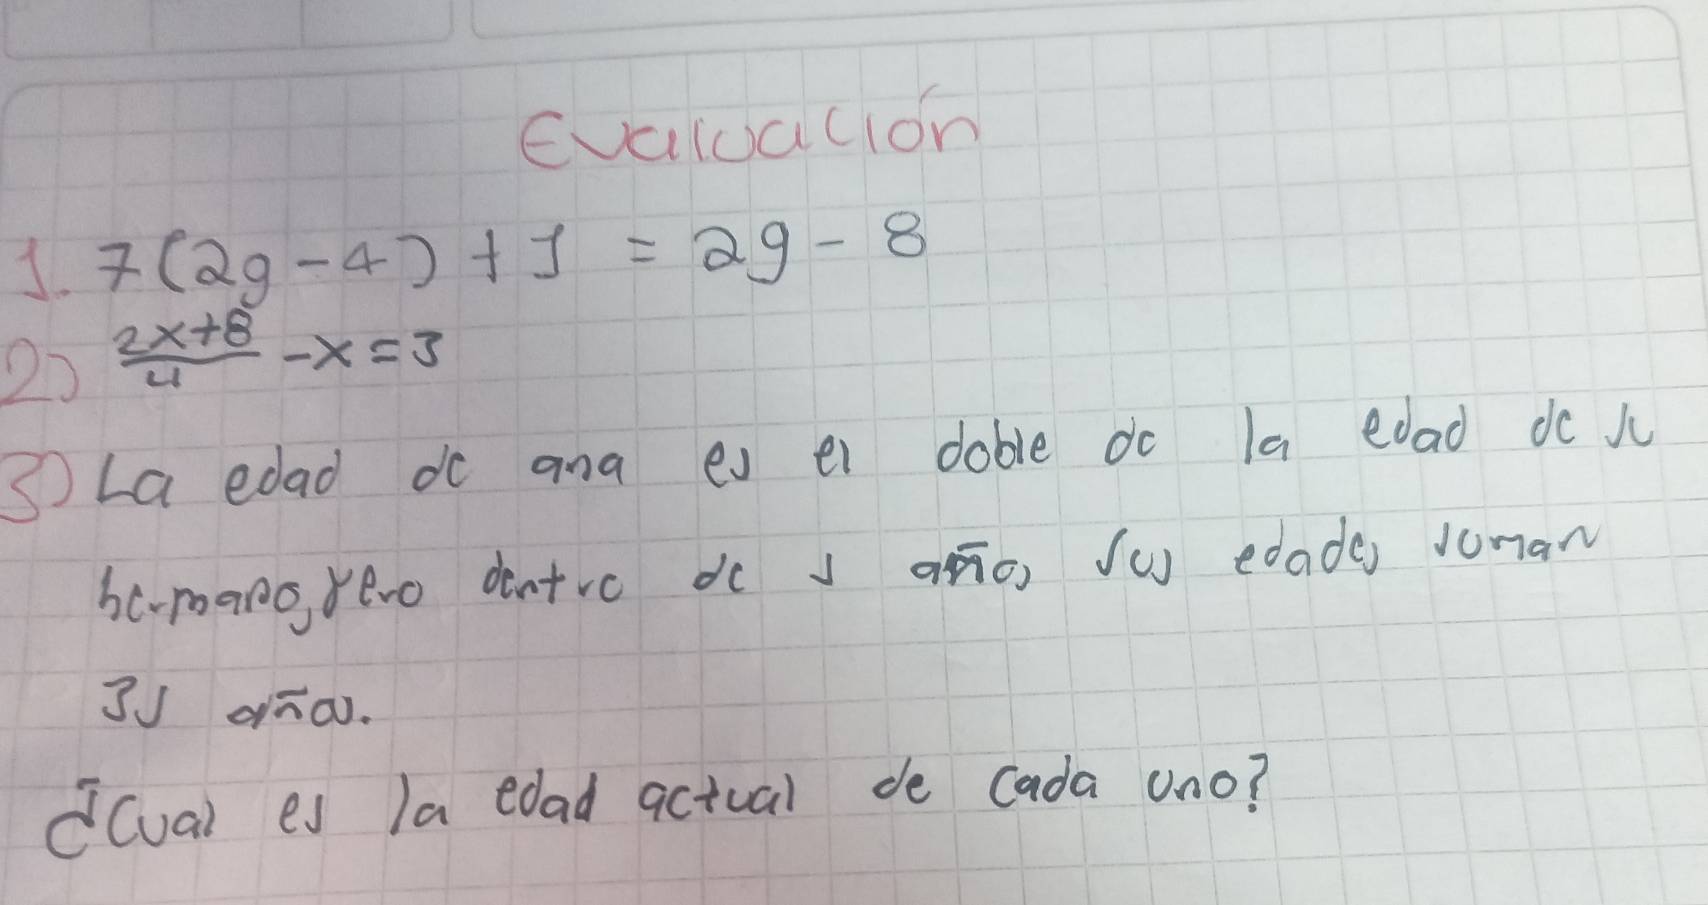 Evaluación
1. 7(2g-4)+5 = 2g-8
2) \frac{2x+8}{4} -x=3
3) La edad de ana es el doble de la edad de su
hermano, pero dentro de 5 años sus edades suman
35 años.
¿Cual es la edad actual de cada uno?